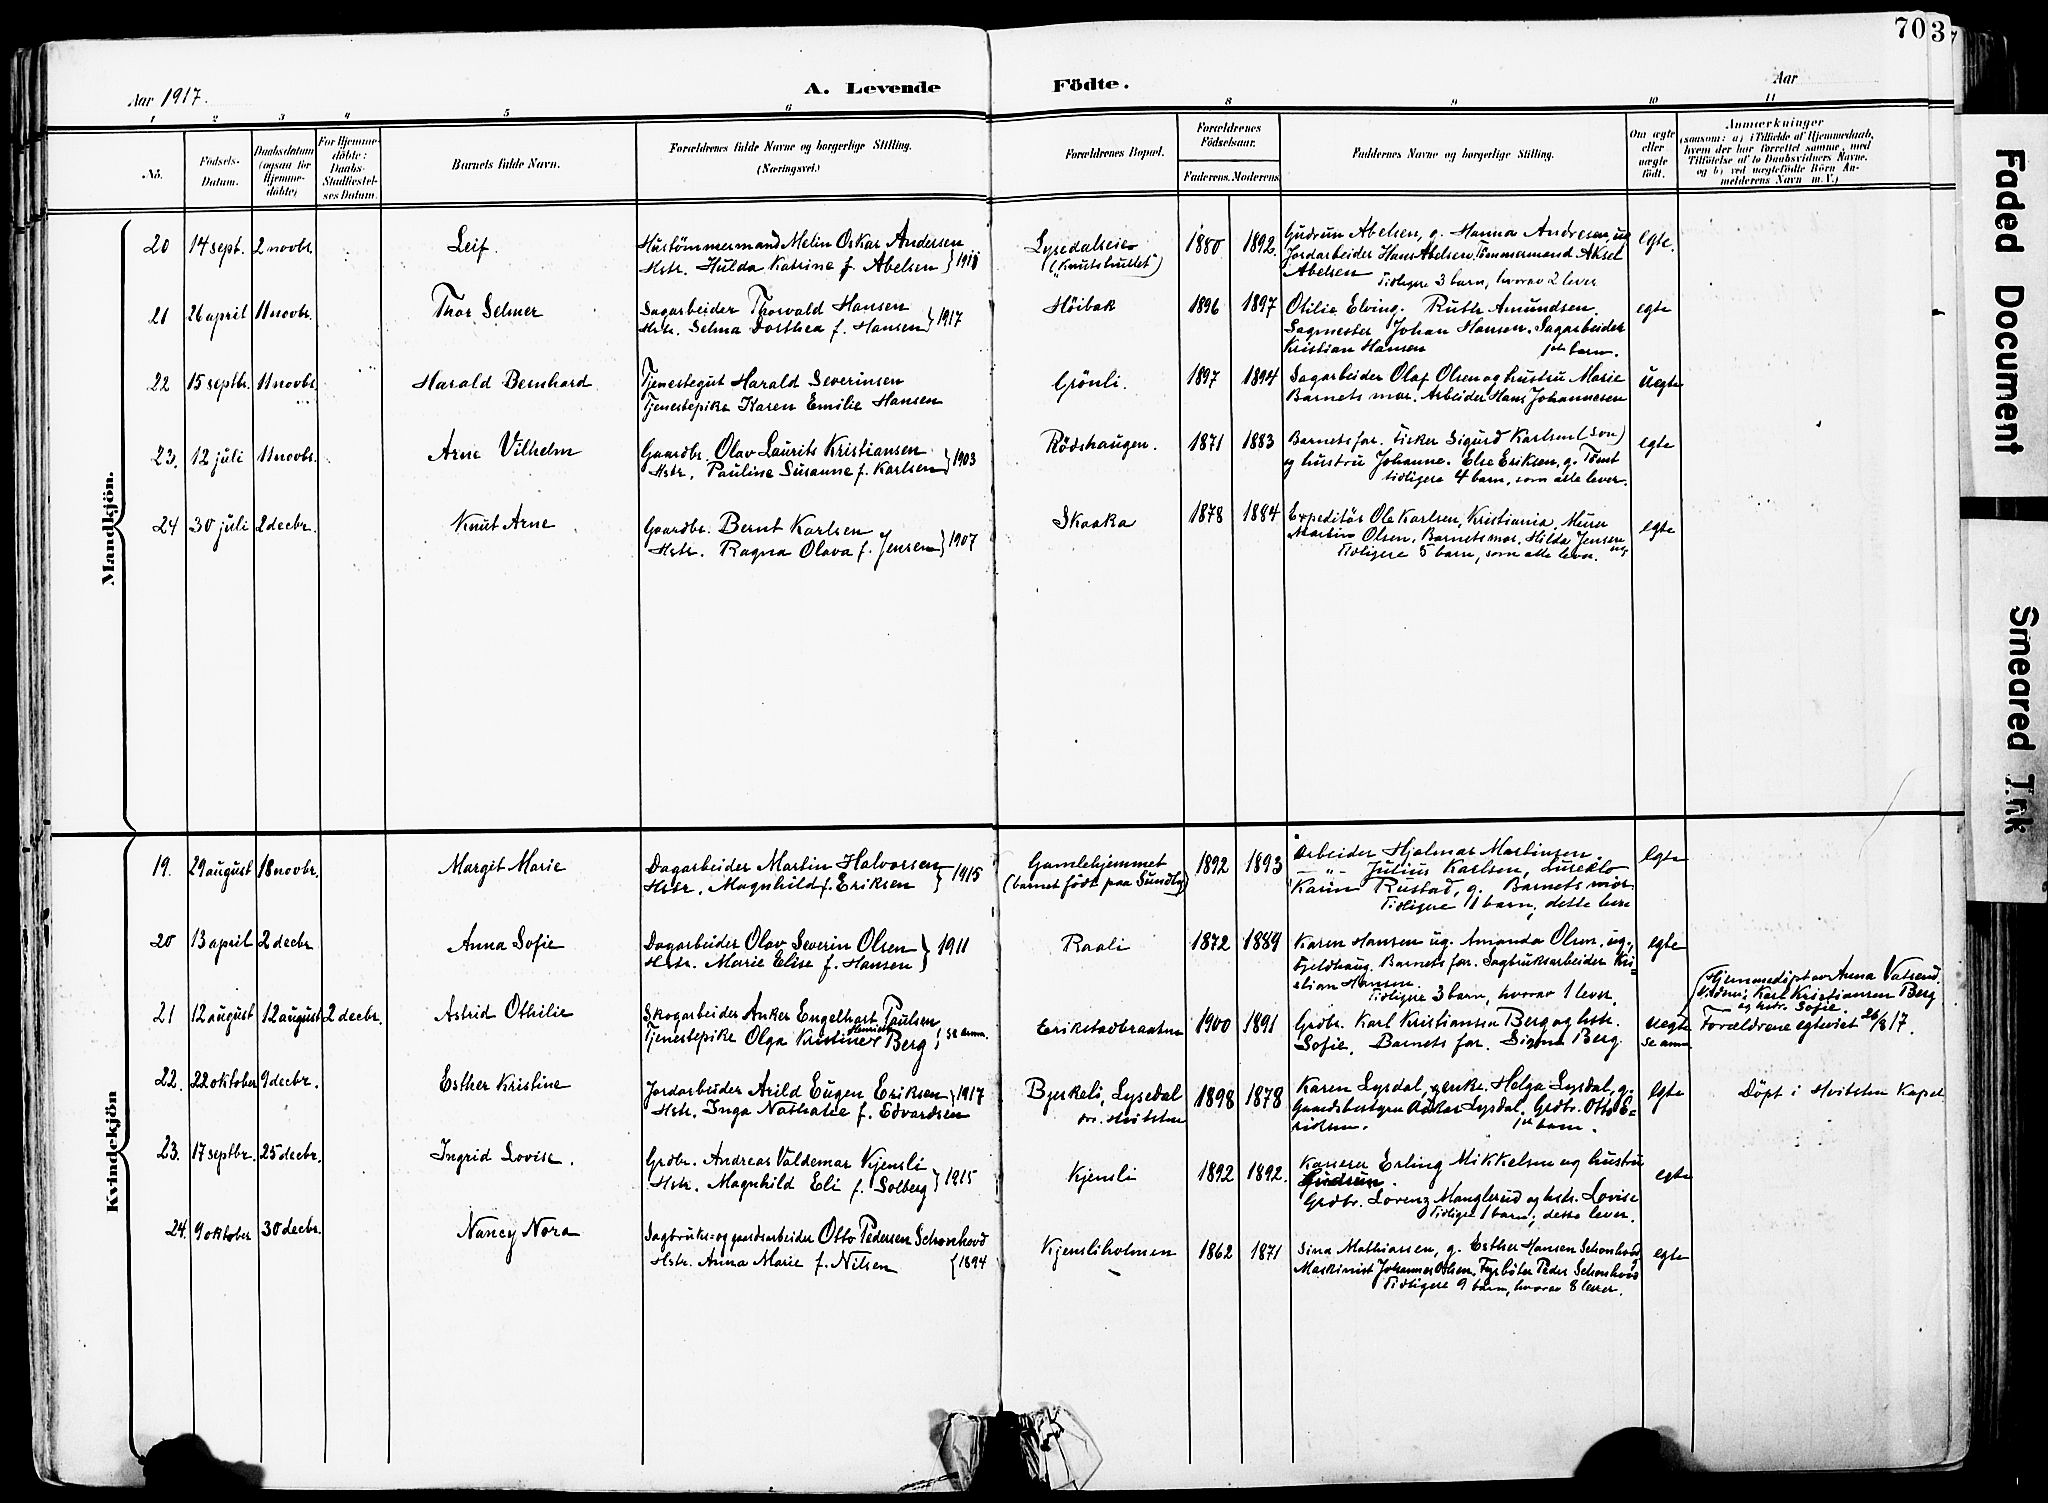 70
3
Aar 1917.
A. Levende Födte.
Aar
1 2 3 4 5 6 8 9 10 11
No.
Födsels-
Datum.
Daabsdatum
(ogsaa for
Hjemme-
döbte)
For Hjemme-
döbte:
Daabs-
Stadfæstel-
ses Datum.
Barnets fulde Navn.
Forældrenes fulde Navne og borgerlige Stilling.
(Næringsvei.)
Forældrenes Bopæl.
Forældrenes
Födselsaar.
Faderens. Moderens.
Faddernes Navne og borgerlige Stilling.
Om ægte
eller
uægte
födt.
Anmærkninger
(saasom: a) i Tilfælde af Hjemmedaab,
hvem der har forrettet samme, med
Tilföielse af to Daabsvidners Navne,
og b) ved uægtefödte Börn An-
melderens Navn m. V.)
Mandkjön.
20 14 sept. 2 novbr. Leif.
Hustömmermand Melin Oskar Andersen
Hstr. Hulda Katrine f. Abelsen } 1911
Lysedalseie
("Knutshullet")
1880 1892
Gudrun Abelsen, g. Hanna Andresen, ug
Jordarbeider Hans Abelsen. Tömmermand Aksel
Abelsen
Tidligere 3 barn, hvorav 2 lever
egte.
21 26 april 11 novbr. Thor Selmer
Sagarbeider Thorvald Hansen
Hstr. Selma Dorthea f. Hansen } 1917
Höibak
1896 1897
Otilie Elving. Ruth Amundsen.
Sagmester Johan Hansen. Sagarbeider
Kristian Hansen 1ste barn.
egte
22 15 septbr. 11 novbr. Harald Bernhard
Tjenestegut Harald Severinsen
Tjenestepike Karen Emilie Hansen
Grönli.
1897 1894
Sagarbeider Olaf Olsen og hustru Marie
Barnets mor. Arbeider Hans Johannesen
Uegte
23. 12 juli 11 novbr. Arne Vilhelm
Gaardbr. Olav Laurits Kristiansen
Hstr. Pauline Susanne f. Karlsen } 1903
Rödshaugen.
1871 1883
Barnets far. Fisker Sigurd Karlsen (Son)
og hustru Johanne. Else Eriksen, g. Tomt
tidligere 4 barn, som alle lever.
egte
24 30 juli 2 decbr. Knut Arne
Gaardbr. Bernt Karlsen
Hstr. Ragna Olava f. Jensen } 1907
Skaaka
1878 1884
Expeditör Ole Karlsen, Kristiania. Murer
Martin Olsen, Barnets mor. Hilda Jensen
ug
Tidligere 5 barn, som alle lever.
egte
Kvindekjön
19. 29 august 18 novbr. Margit Marie
Dagarbeider Martin Halvorsen
Hstr. Magnhild f. Eriksen } 1915
Gamlehjemmet
(barnet födt paa Sundby)
1892 1893
Arbeider Hjalmar Martinsen,
— " — Julius Karlsen,
Karin Rustad, g. Barnets mor.
Tidligere 1 barn, dette lever
egte
20 13 april 2 decbr. Anna Sofie
Dagarbeider Olav Severin Olsen
Hstr. Marie Elise f. Hansen } 1911
Raali
1872 1889
Karen Hansen ug. Amanda Olsen, ug.,
Fjeldhaug. Barnets far. Sagbruksarbeider Kri-
stian Hansen.
Tidligere 3 barn, hvorav 1 lever.
egte
21 12 august 12 august 2 decbr. Astrid Othilie
Skogarbeider Anker Engelhart Paulsen
Tjenestepike Olga Kristine Henriette Berg, } se anm.
Erikstadbraaten
1900 1891
Grdbr. Karl Kristiansen Berg og hstr.
Sofie. Barnets far. Signe Berg.
uegte
se anm.
Hjemmedöpt av Anna Vatsend.
Vidner: Karl Kristiansen Berg
og hstr. Sofie.
Forældrene egteviet 26/8 17.
22. 22 oktober 9 decbr. Esther Kristine
Jordarbeider Arild Eugen Eriksen
Hstr. Inga Nathalie f. Edvardsen } 1917
Bjerkeli, Lysedal
pr. Hvitsten
1898 1878
Karen Lysdal, enke. Helga Lysdal, g.
Gaardsbestyrer Oskar Lysdal. Grdbr. Otto E-
riksen. 1ste barn.
egte
Döpt i Hvitsten Kapel
23. 17 septbr. 25 decbr. Ingrid Lovise.
Grdbr. Andreas Valdemar Kjensli
Hstr. Magnhild Eli f. Solberg } 1915
Kjensli
1892 1892.
Kaserer Erling Mikkelsen og hustru
Gudrun.
Grdbr. Lorenz Manglerud og hstr. Lovise
Tidligere 1 barn, dette lever.
egte
24. 9 oktober 30 decbr. Nancy Nora
Sagbruks- og gaardsarbeider Otto Pedersen Schonhovd
Hstr. Anna Marie f. Nilsen { 1894
Kjensliholmen
1862 1871
Sina Mathiassen, g. Esther Hansen Schonhovd
Maskinist Johannes Olsen. Fyrböter Peder Schonhovd
Tidligere 9 barn, hvorav 8 lever.
egte
Faded Document
Smeared Ink